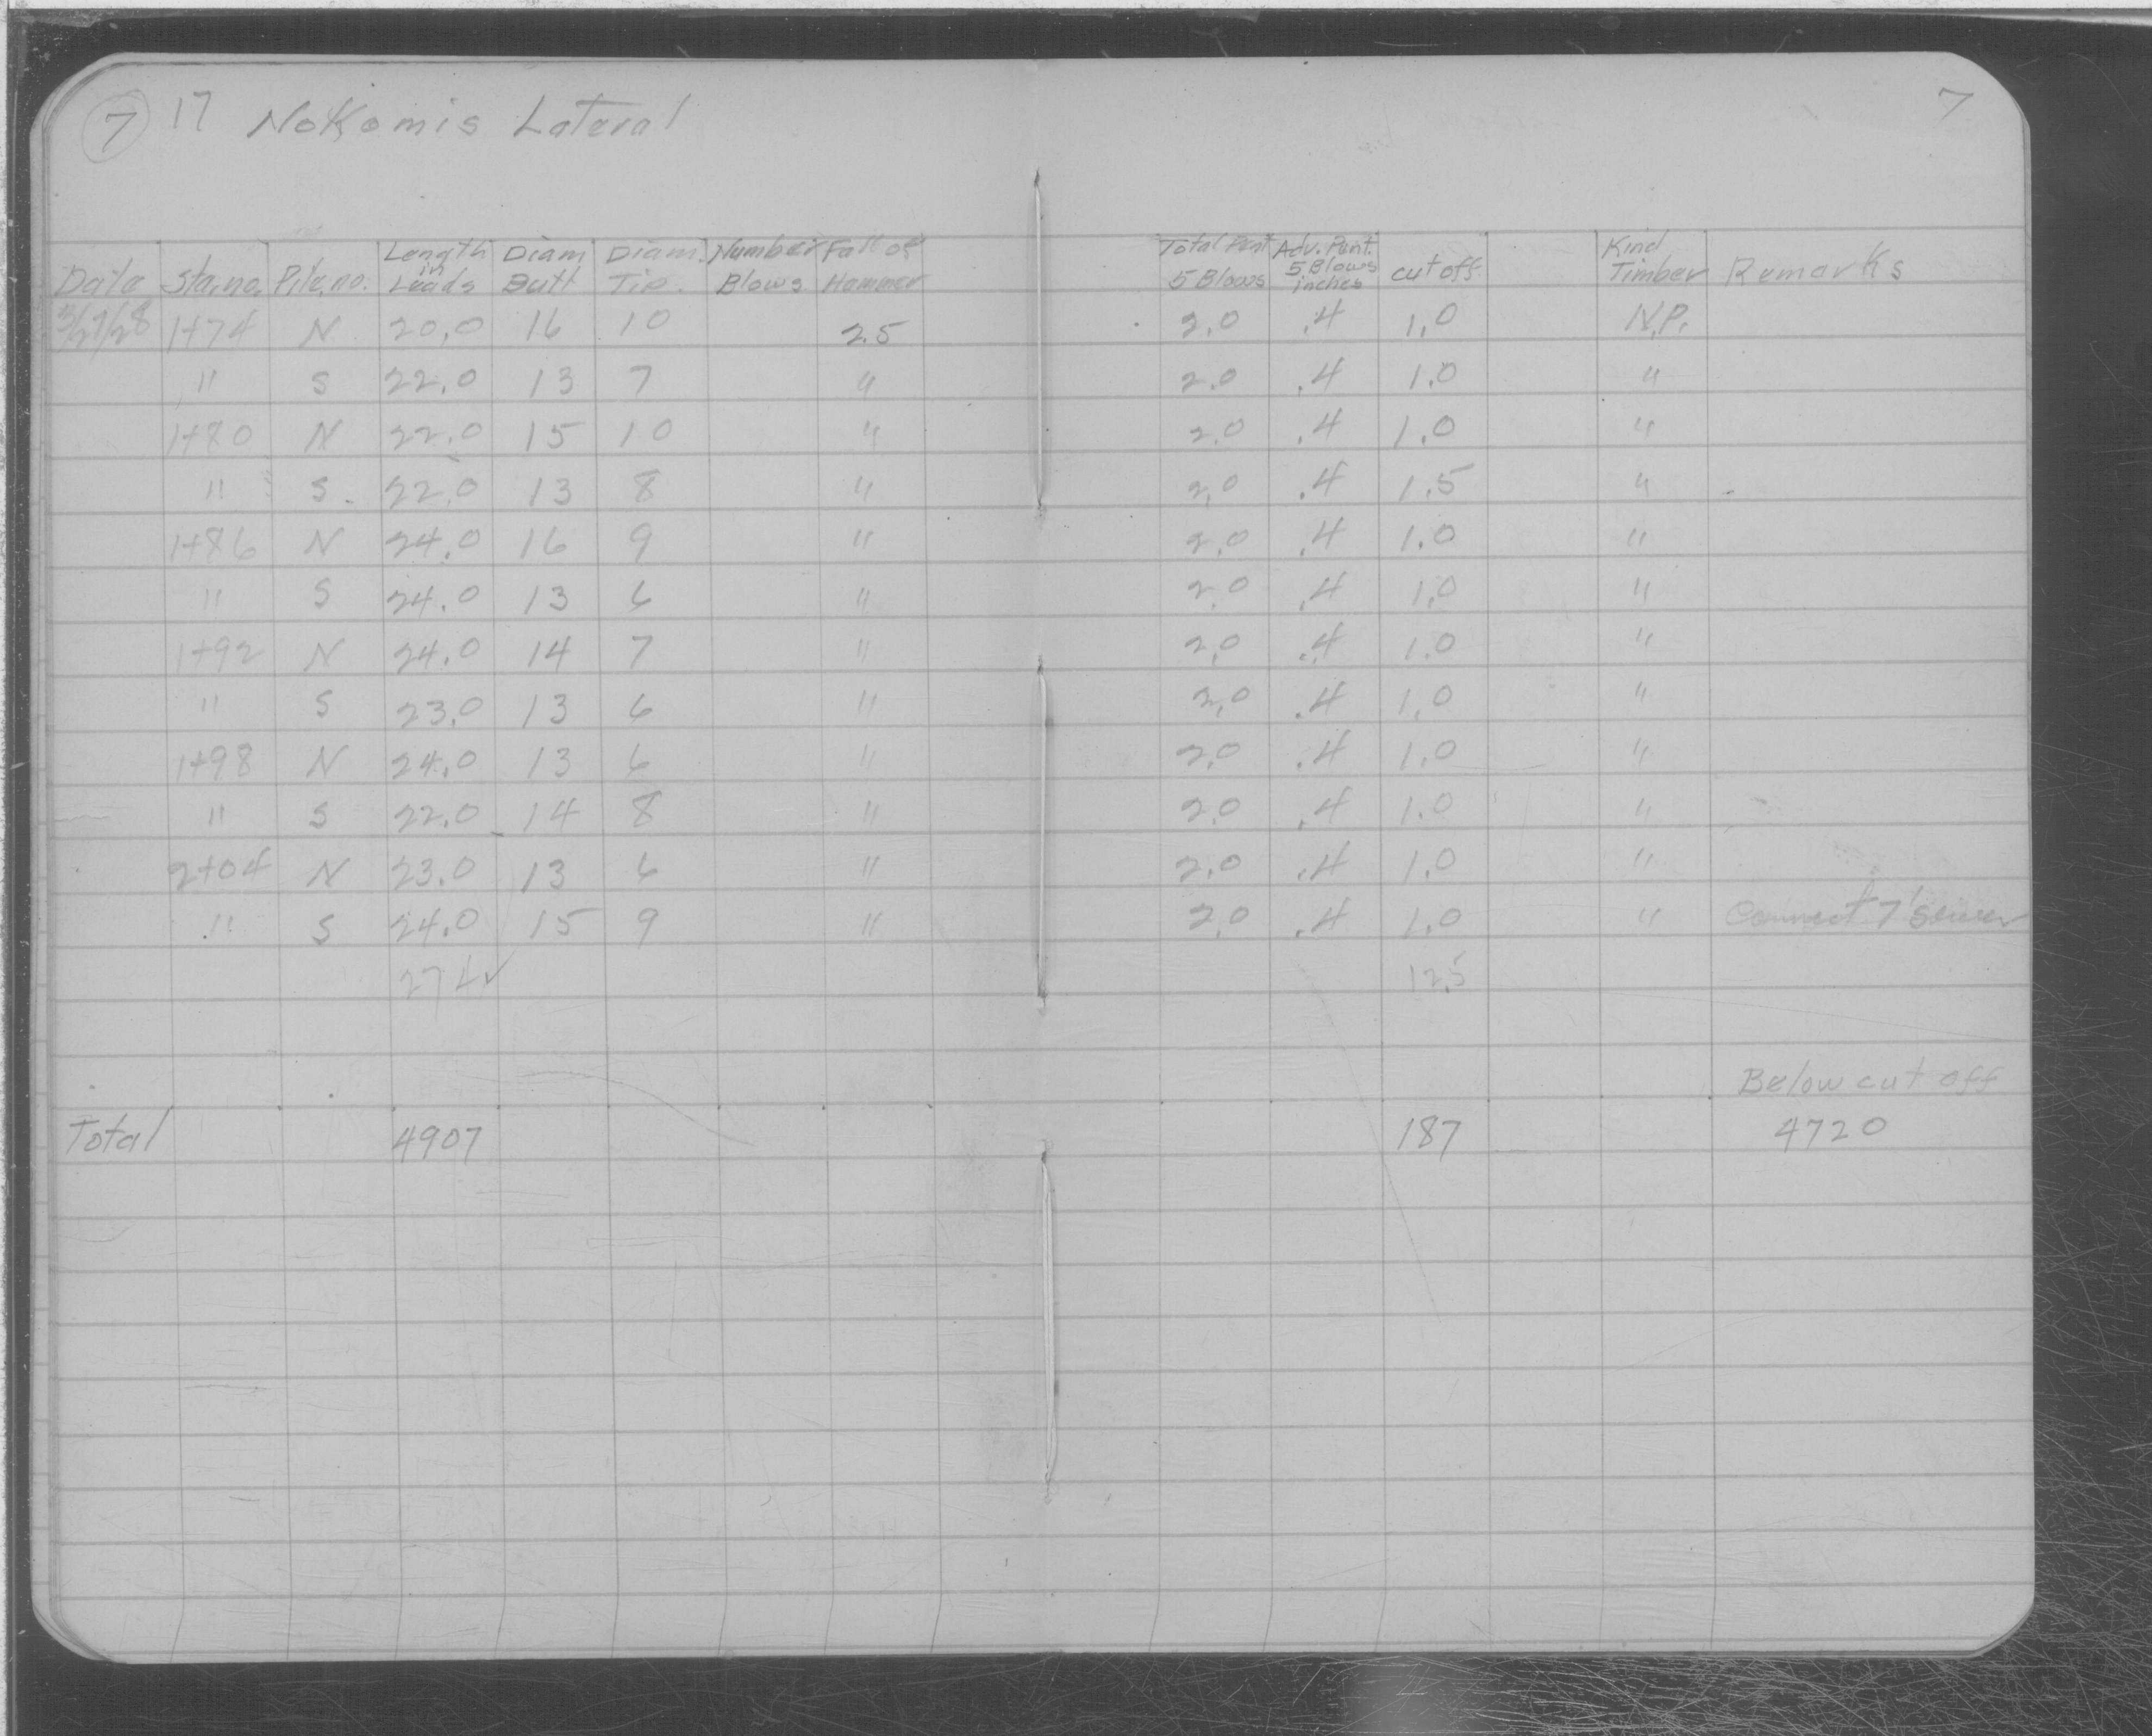 7 17 Nokomis Lateral 7
Date Sta.no. Pile.no. Length in Leads Diam Butt Diam. Tip. Number Blows Fall of Hammer Total Pent 5 Blows Adv. Pent. 5 Blows inches cut off Kind Timber Remarks
3/27/28 1+74 N 20.0 16 10 25 2.0 .4 1.0 N.P.
" S 22.0 13 7 " 2.0 .4 1.0 "
1+80 N 22.0 15 10 " 2.0 .4 1.0 "
" S. 22.0 13 8 " 2.0 .4 1.5 "
1+86 N 24.0 16 9 " 2.0 .4 1.0 "
" S 24.0 13 6 " 2.0 .4 1.0 "
1+92 N 24.0 14 7 " 2.0 .4 1.0 "
" S 23.0 13 6 " 2.0 .4 1.0 "
1+98 N 24.0 13 6 " 2.0 .4 1.0 "
" S 22.0 14 8 " 2.0 .4 1.0 "
2+04 N 23.0 13 6 " 2.0 .4 1.0 "
" S 24.0 15 9 " 2.0 .4 1.0 " Connect 7' Sewer
274 ✓ 12.5
Below cut off
Total 4907 187 4720